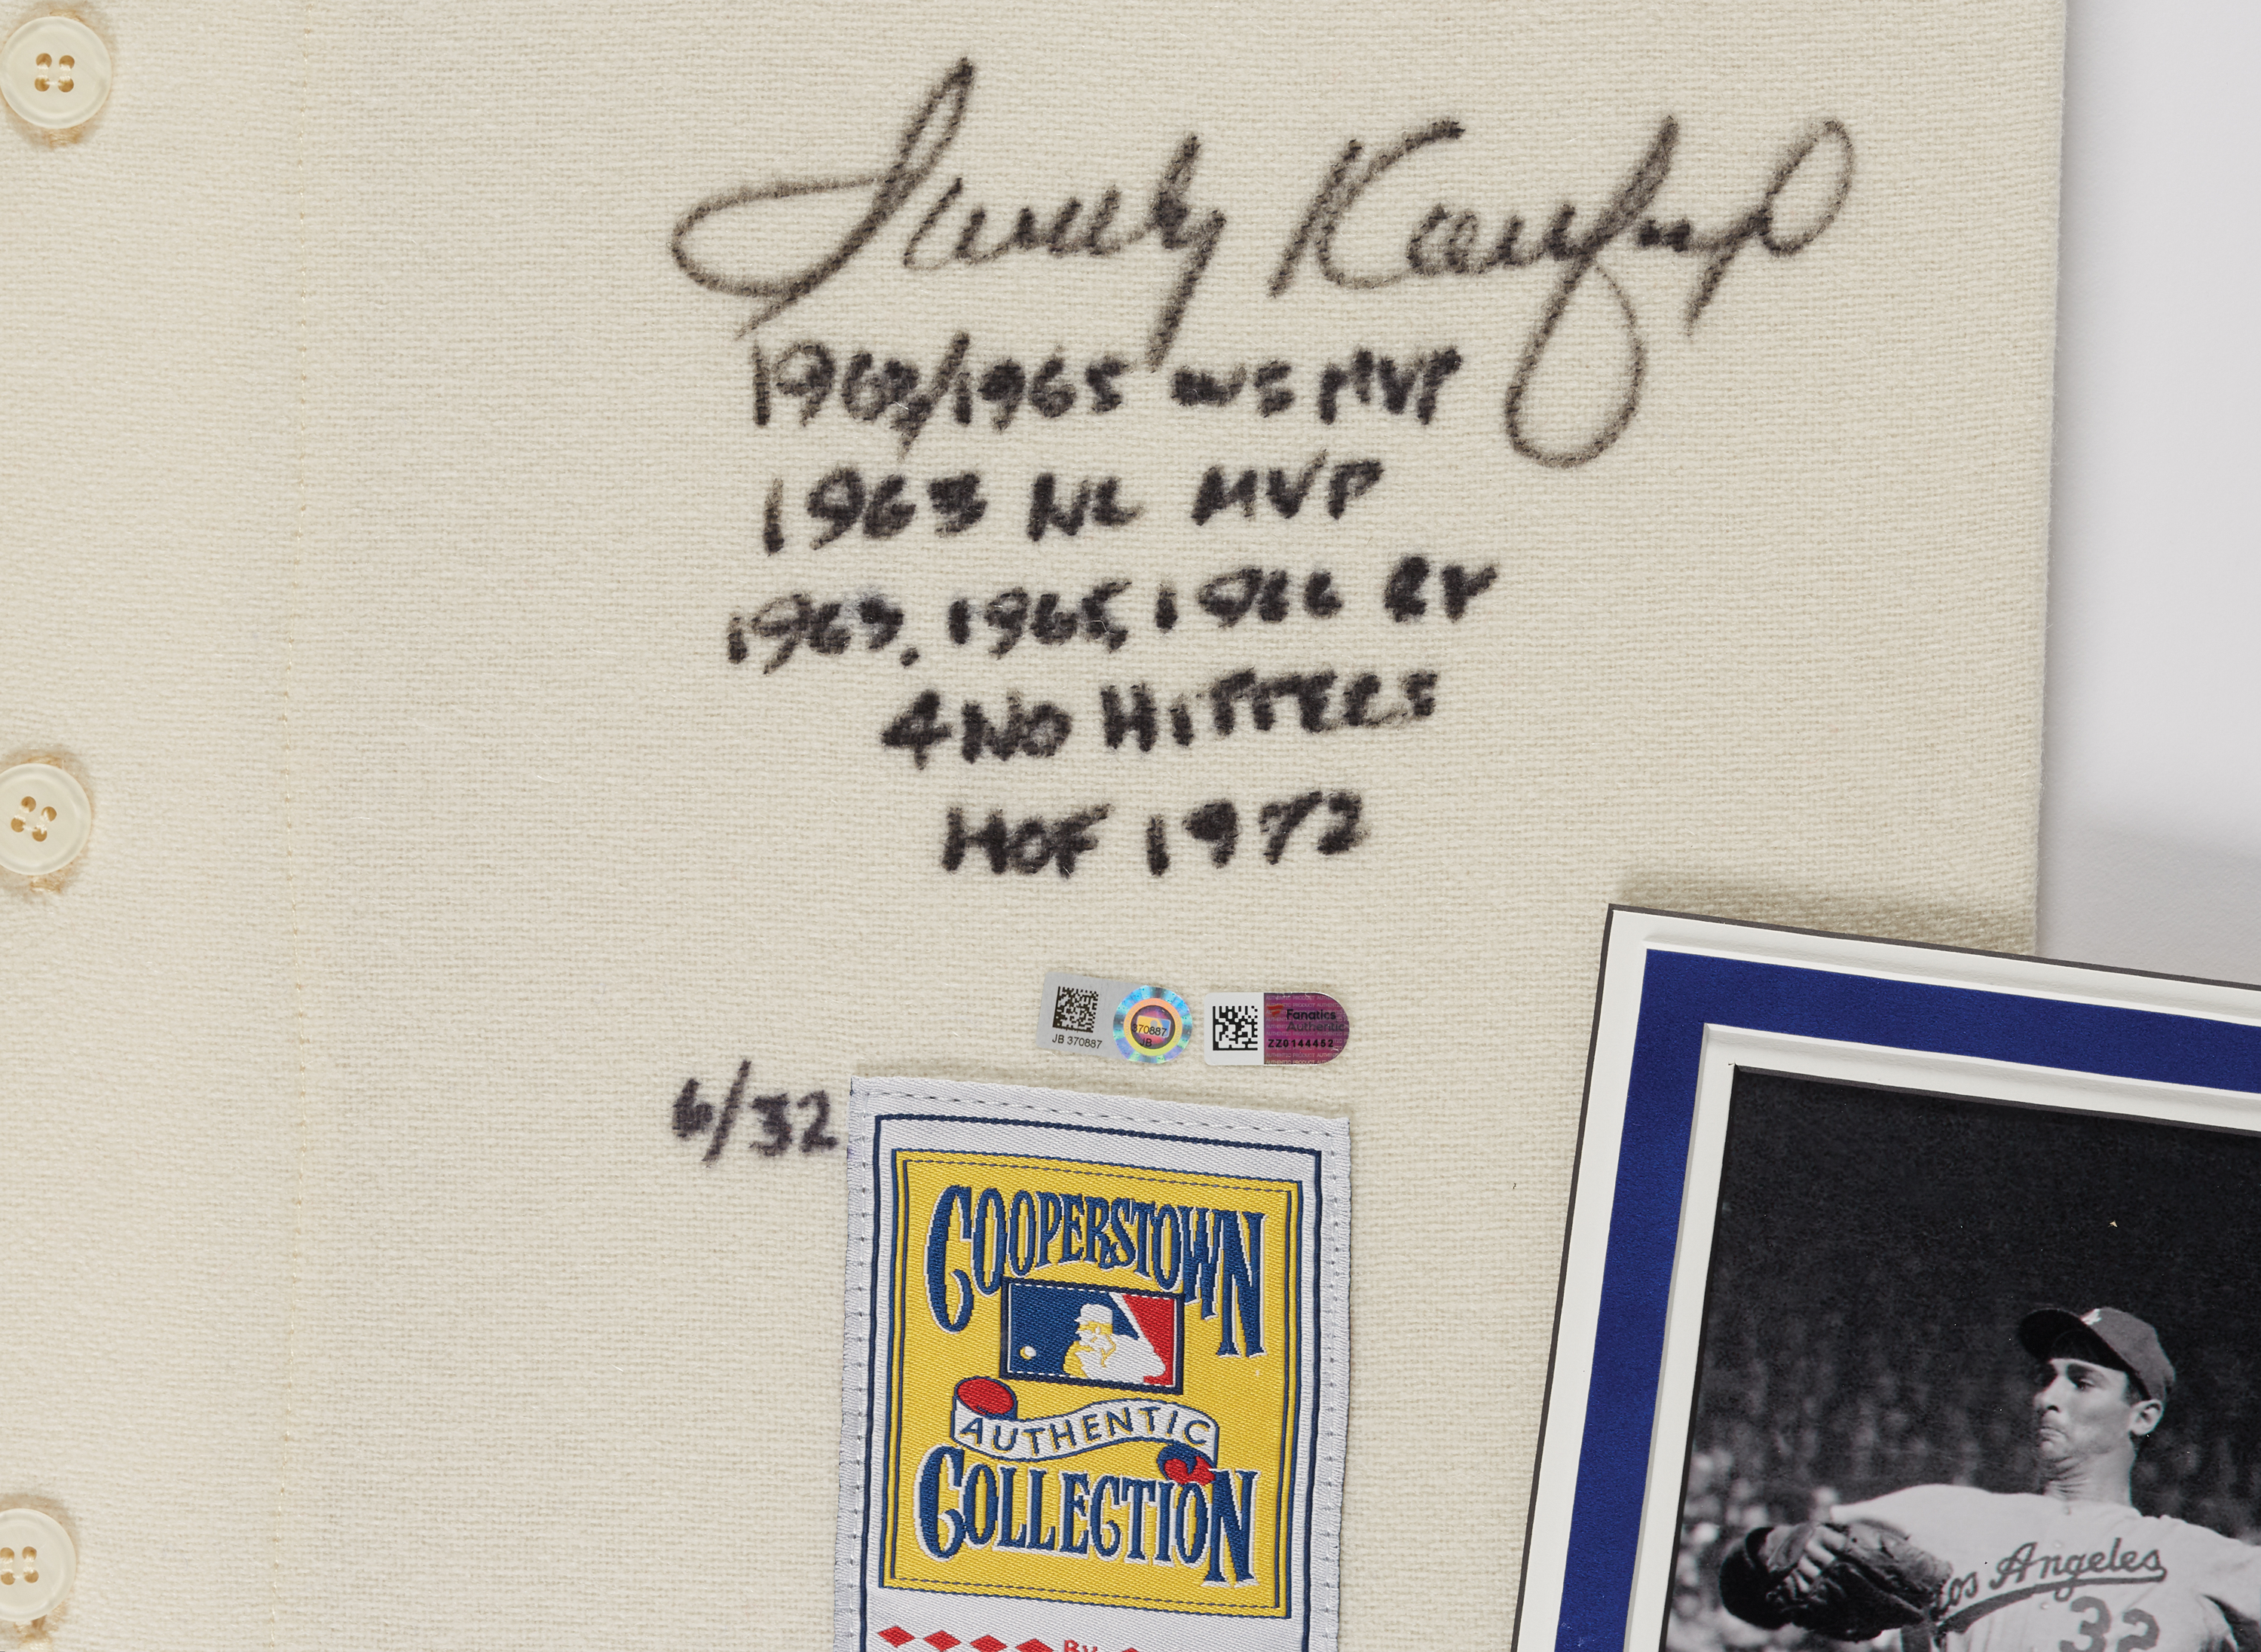 Sandy Koufax
1963/1965 WS MVP
1963 NL MVP
1963, 1965, 1966 CY
4 NO HITTERS
HOF 1972
JB 370887
370887
JB
Fanatics
Authentic
ZZ0144462
6/32
COOPERSTOWN
AUTHENTIC
COLLECTION
BY
Los Angeles
32